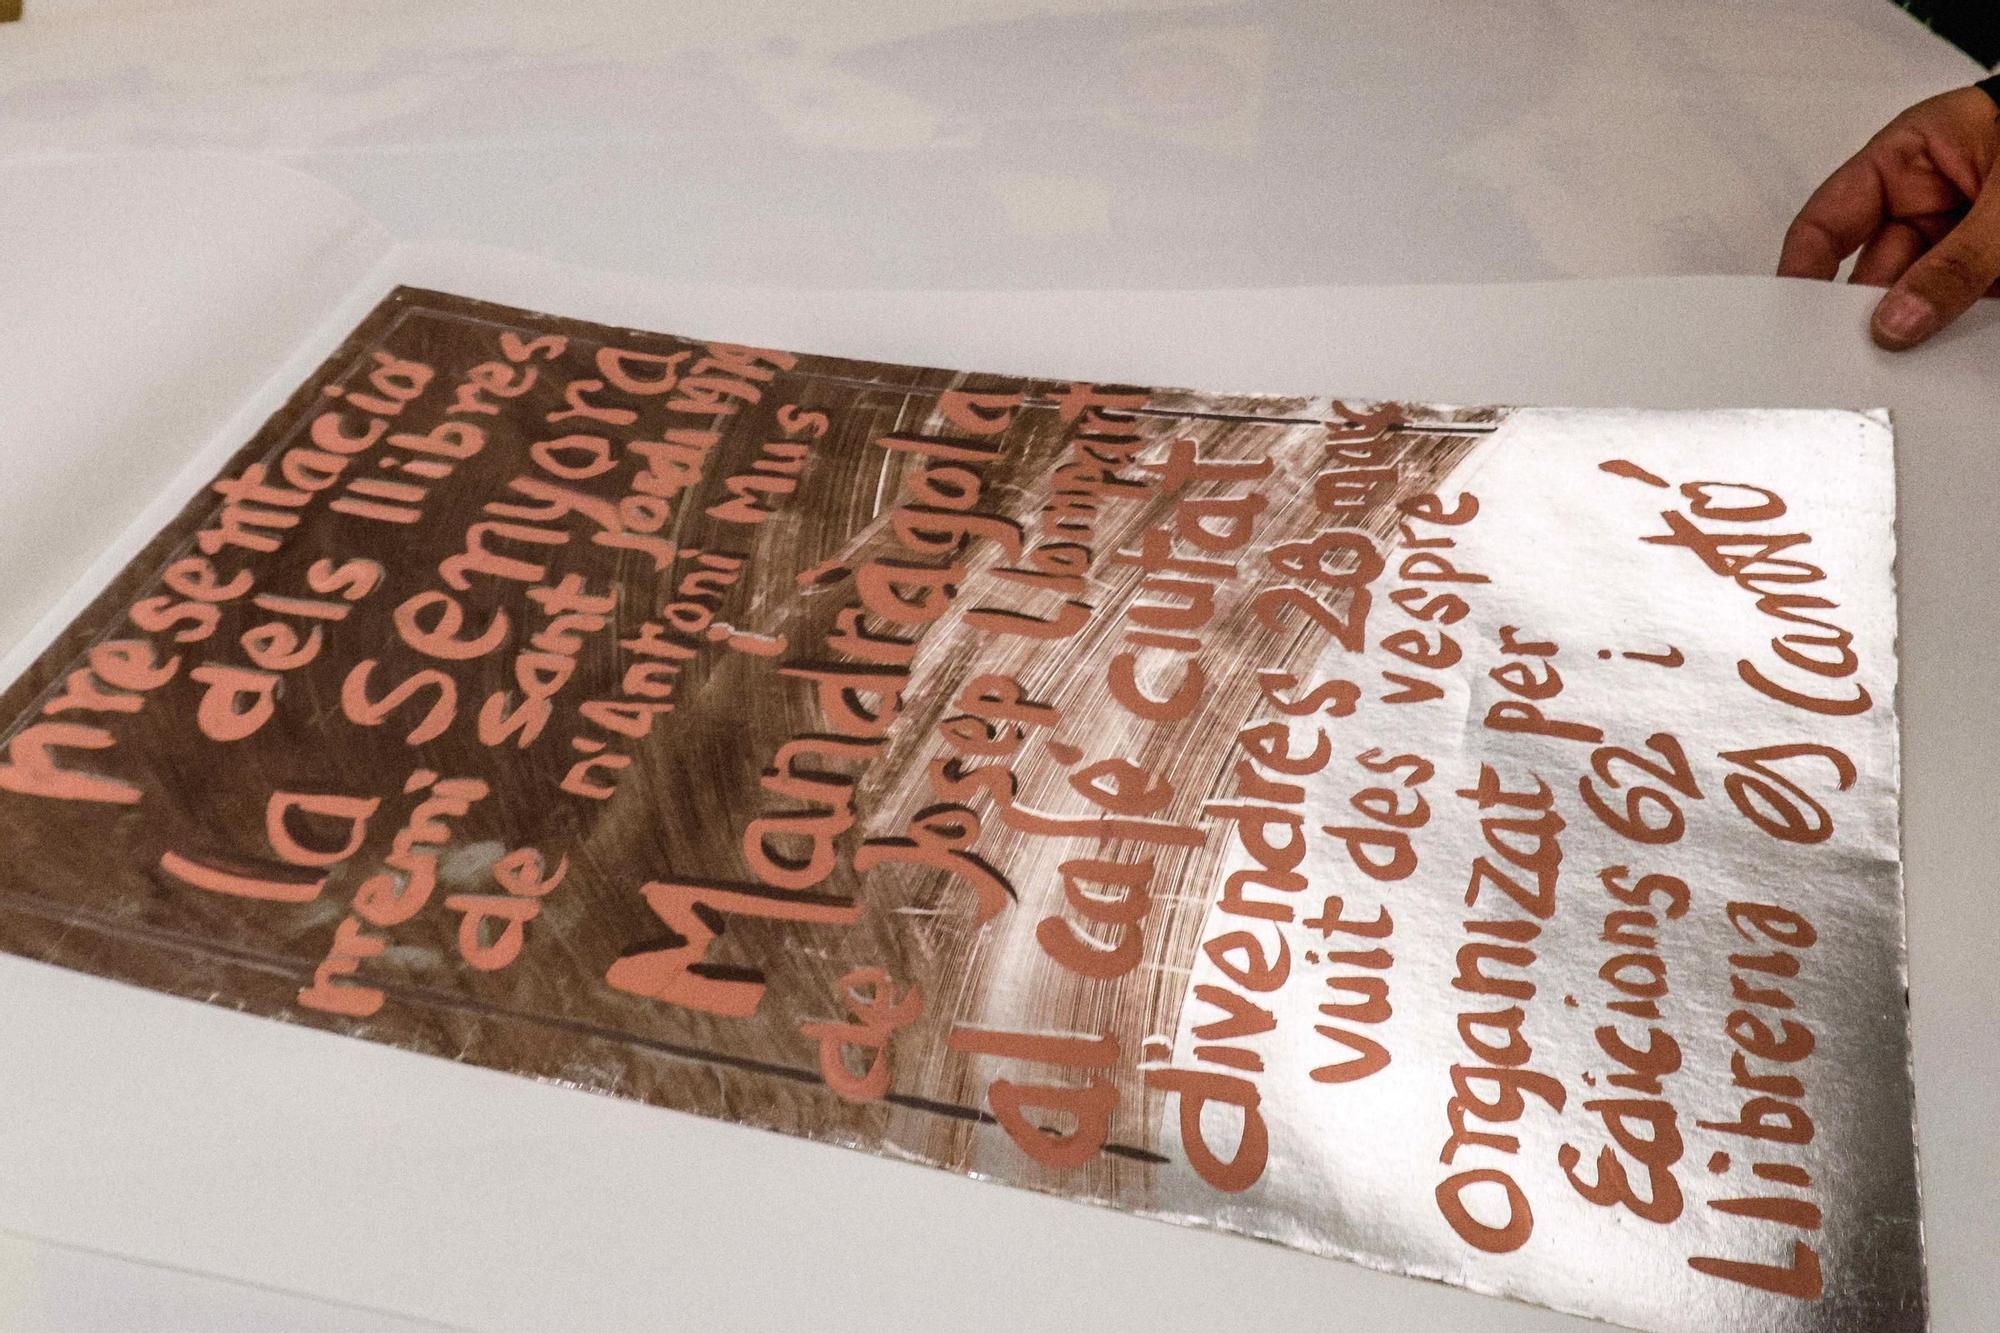 presentació
dels llibres
la Senyora
premi Sant Jordi 1979
de n'Antoni Mus
i
Mandragola
de Josep Llompart
al café ciutat
divendres 28 març
vuit des vespre
organizat per
Edicions 62 i
Llibreria es Cantó